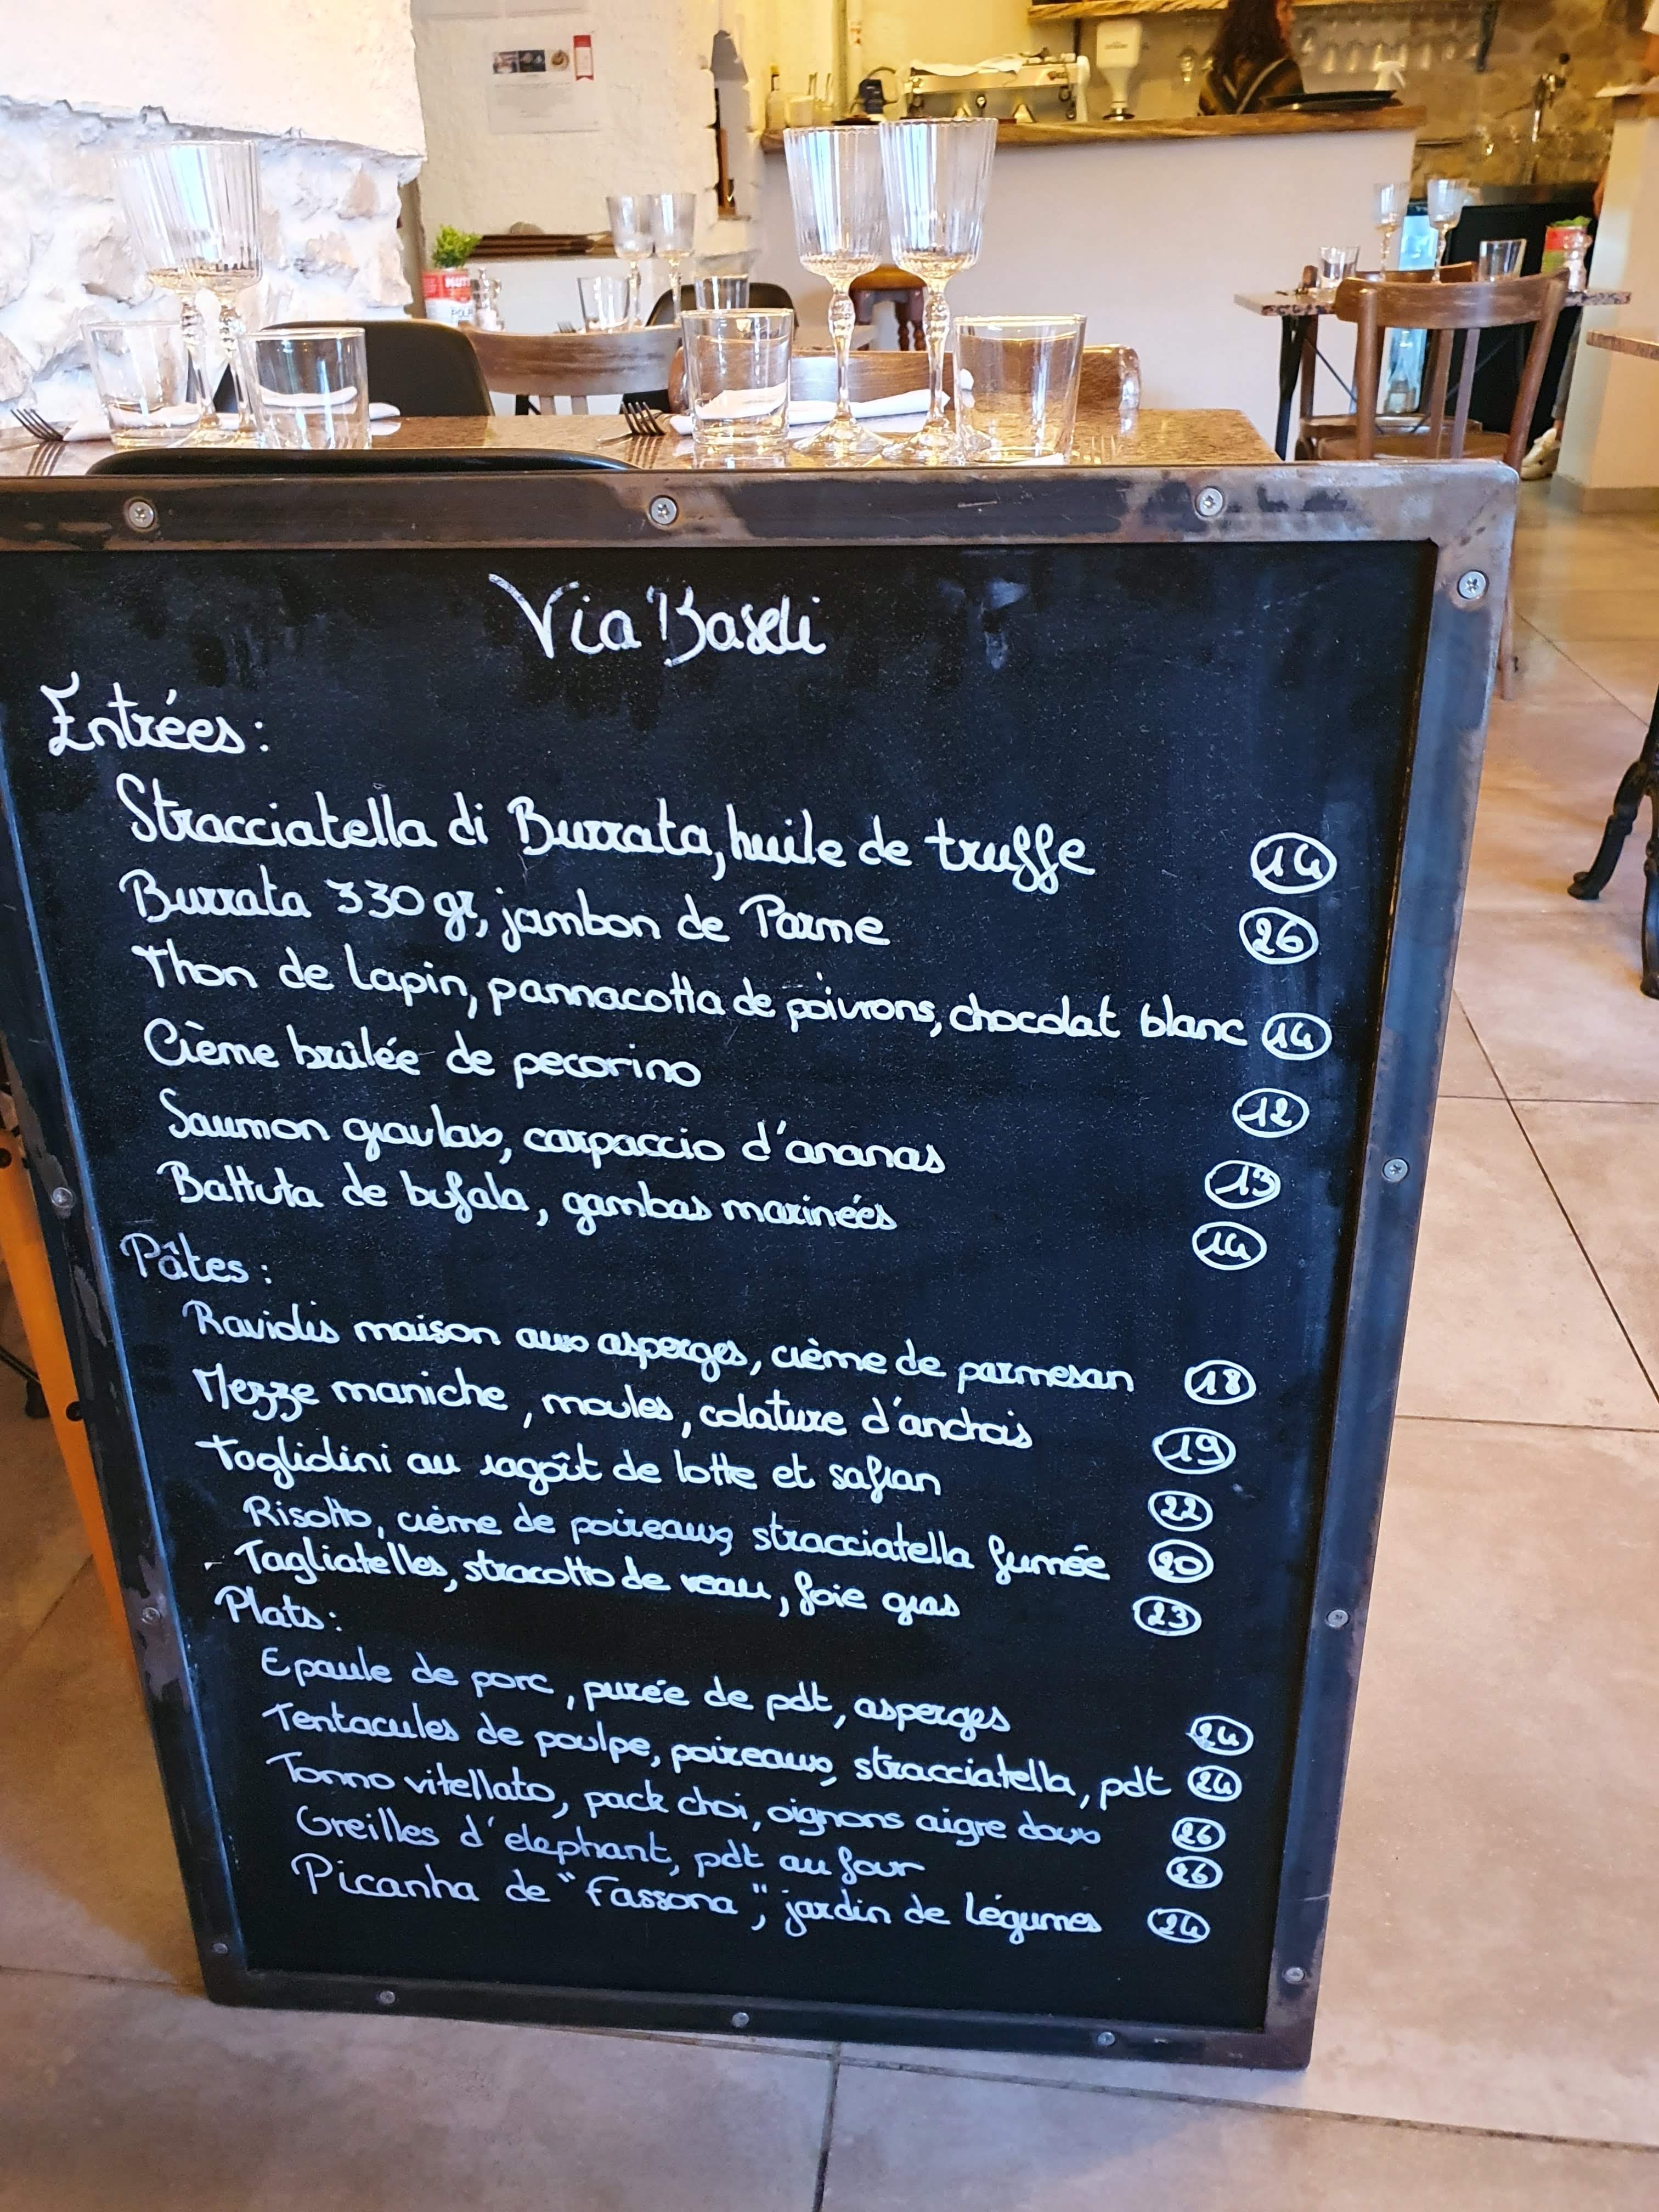 Via Baseli
Entrées :
Stracciatella di Burrata, huile de truffe 14
Burrata 330 gr, jambon de Parme 26
Thon de Lapin, pannacotta de poivrons, chocolat blanc 14
Crème brûlée de pecorino 12
Saumon gravlax, carpaccio d'ananas 13
Battuta de bufala, gambas marinées 14
Pâtes :
Raviolis maison aux asperges, crème de parmesan 18
Mezze maniche, moules, colature d'anchois 19
Tagliolini au ragoût de lotte et safran 22
Risotto, crème de poireaux, stracciatella fumée 20
Tagliatelles, stracotto de veau, foie gras 23
Plats :
Epaule de porc, purée de pdt, asperges 24
Tentacules de poulpe, poireaux, stracciatella, pdt 24
Tonno vitellato, pack choi, oignons aigre doux 26
Oreilles d'elephant, pdt au four 26
Picanha de "Fassona", jardin de légumes 24